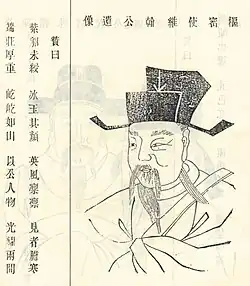 樞密使維翰公遺像
贊曰
紫 冰玉其顏 英風凜凜 見者膽寒
端莊厚重 屹屹如山 以公人物 光耀兩間